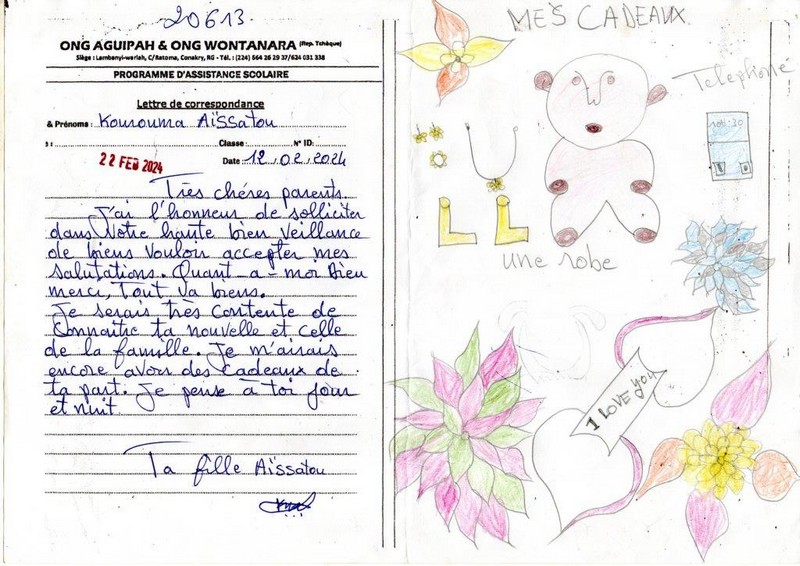 20613
ONG AGUIPAH & ONG WONTANARA (Rep. Tchèque)
Siège : Lambanyi-wariah, C/Ratoma, Conakry, RG - Tél. : (224) 564 26 29 37/624 031 338
PROGRAMME D'ASSISTANCE SCOLAIRE
Lettre de correspondance
& Prénoms : Kourouma Aïssatou
Classe : N° ID:
22 FEB 2024
Date : 12.02.2024
Très chéres parents.
J'ai l'honneur de solliciter
dans votre haute bien veillance
de biens vouloir accepter mes
salutations. Quant-a-moi Bieu
merci, Tout va biens.
Je serais très contente de
Connaître ta nouvelle et celle
de la famille. Je m'airais
encore avoir des cadeaux de
ta part. Je pense à toi jour
et nuit
Ta fille Aïssatou
MES CADEAUX
Telephone
10h:30
une robe
I LOVE YOU